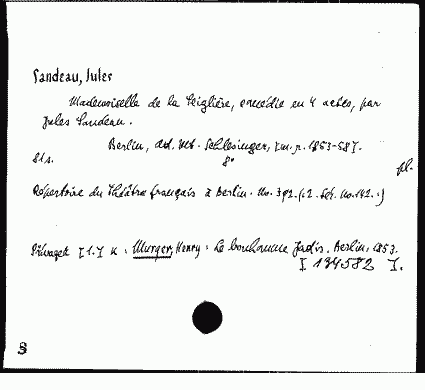 Sandeau, Jules
Mademoiselle de la Seiglière, comédie en 4 actes, par
Jules Sandeau.
Berlin, Schlesinger, [1853-58].
81 s. 8°
pl.
Répertoire du théâtre français à Berlin. No. 392. (:2. Sér. No. 142.:)
Přívazek [1.] k: Murger, Henry: Le bonhomme Jadis. Berlin, 1853.
[ 134582 ].
S